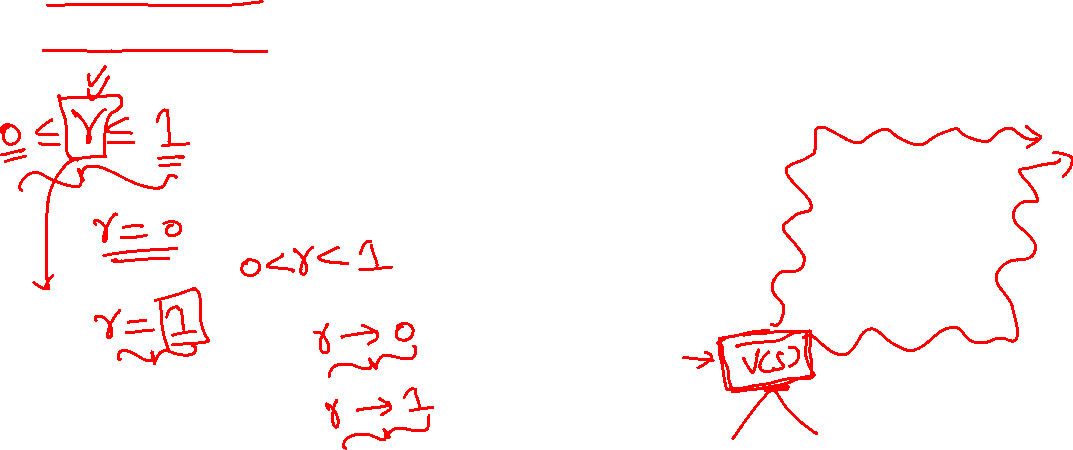 0 ≤ γ ≤ 1
γ = 0
0 < γ < 1
γ = 1
γ → 0
γ → 1
V(S)